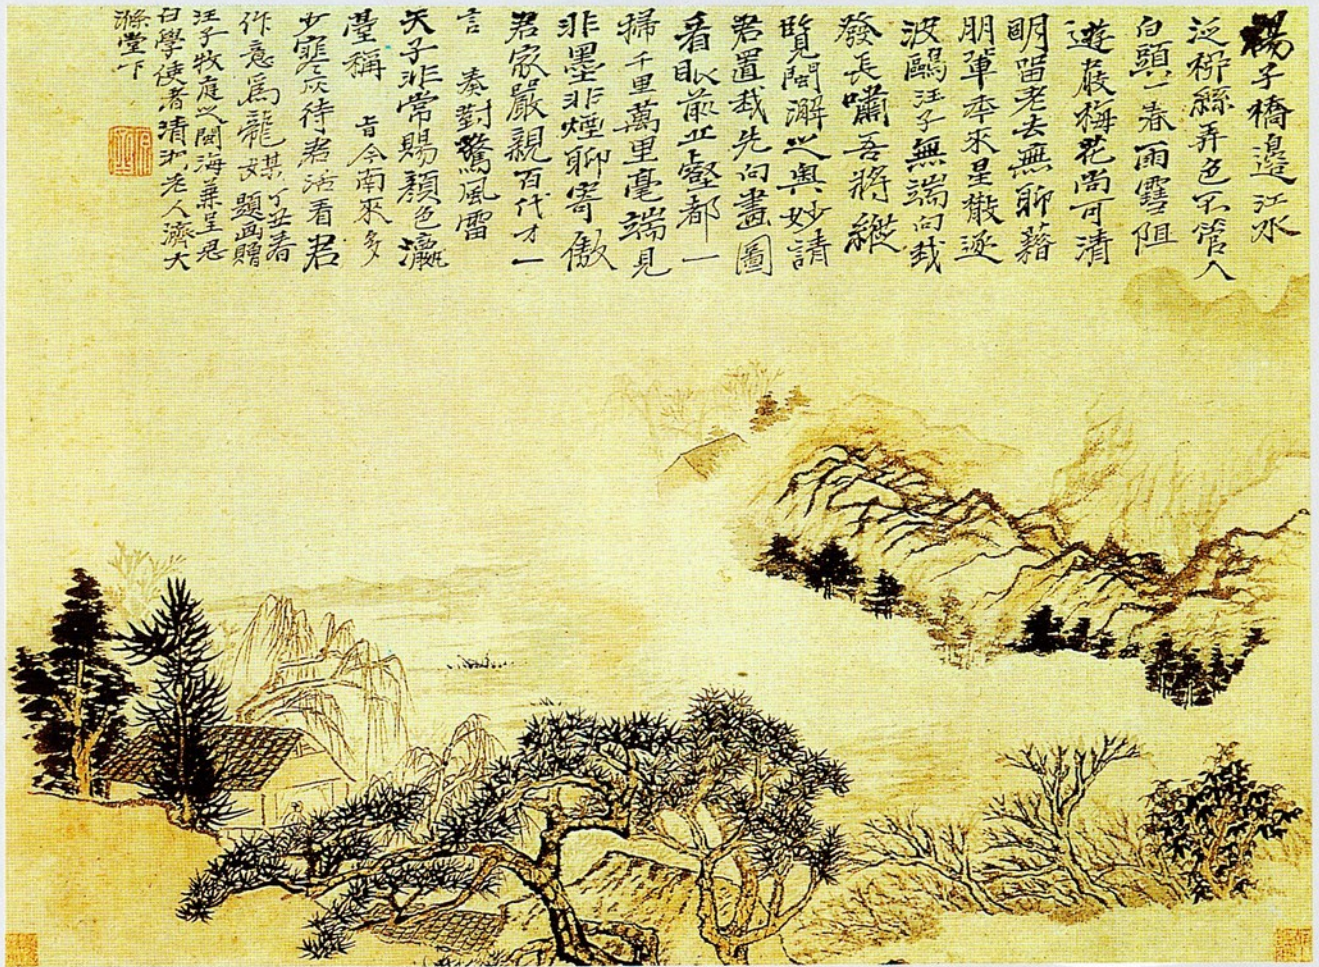 楊子橋邊江水
泛柳絲弄色不管人
白頭一春雨雪阻
遊蔽梅花尚可清
明留老去無聊藉
朋輩本來星散逐
波鷗汪子無端向我
發長嘯吾將縱
覽閩澥之奧妙請
君置我先向畫圖
看眼前丘壑都一
掃千里萬里毫端見
非墨非煙聊寄傲
君家嚴親百代才一
言 奏對驚風雷
天子非常賜顏色瀛
臺稱 旨今南來多
少寒灰待君活看君
作意爲龍媒丁丑春
題画贈
汪子牧庭之閩海兼呈思
白學使者清湘老人濟大
滌堂下